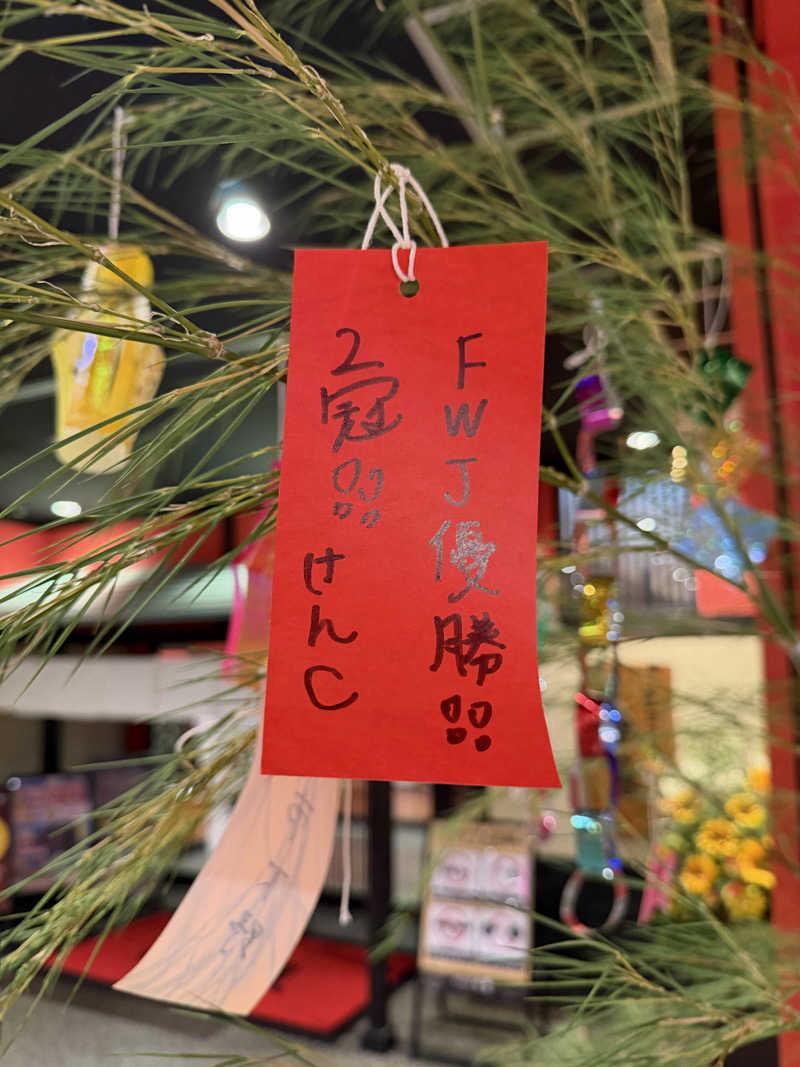 FWJ優勝!!
2冠!! けんC